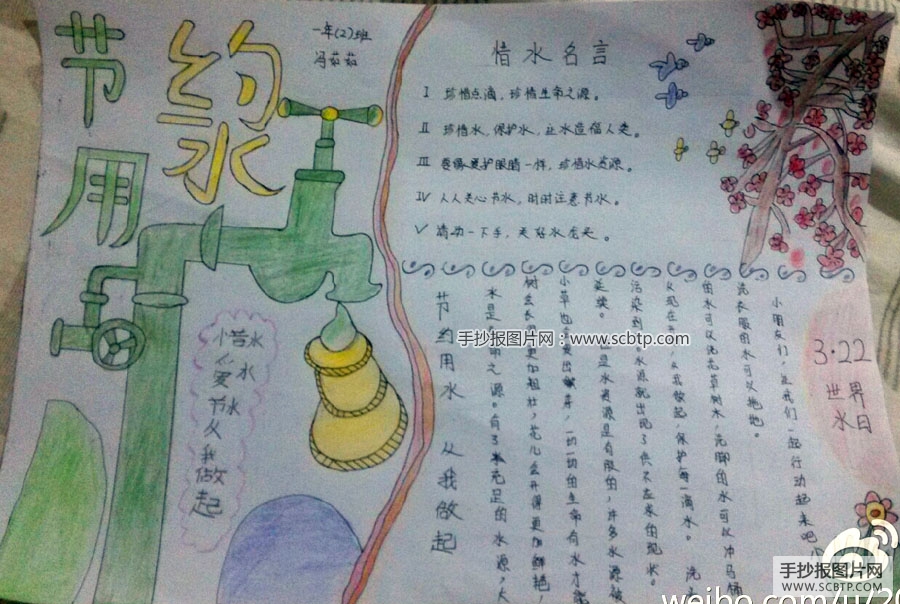 节约
用水
一年(2)班
冯茹茹
惜水
爱水
节水
从我做起
惜水名言
I 珍惜点滴,珍惜生命之源。
II 珍惜水,保护水,让水造福人类。
III 要像爱护眼睛一样,珍惜水资源。
IV 人人关心节水,时时注意节水。
V 请动一下手,关好水龙头。
节约用水 从我做起
水是生命之源。有了水充足的水源,大
树会长得更加粗壮,花儿会开得更加鲜艳,
小草也会出嫩芽,一切一切的生命有水才能
延续。但是水资源是有限的,许多水源被
污染到水源就出现了供不应求的现水。
从现在开始,从我做起,保护每一滴水。 洗
的水可以浇花育树木,洗脚的水可以冲马桶
洗衣服的水可以拖地。
小朋友们,让我们一起行动起来吧
3·22
世界
水日
手抄报图片网:www.scbtp.com
手抄报图片网
WWW.SCBTP.COM
weibo.com/u/20